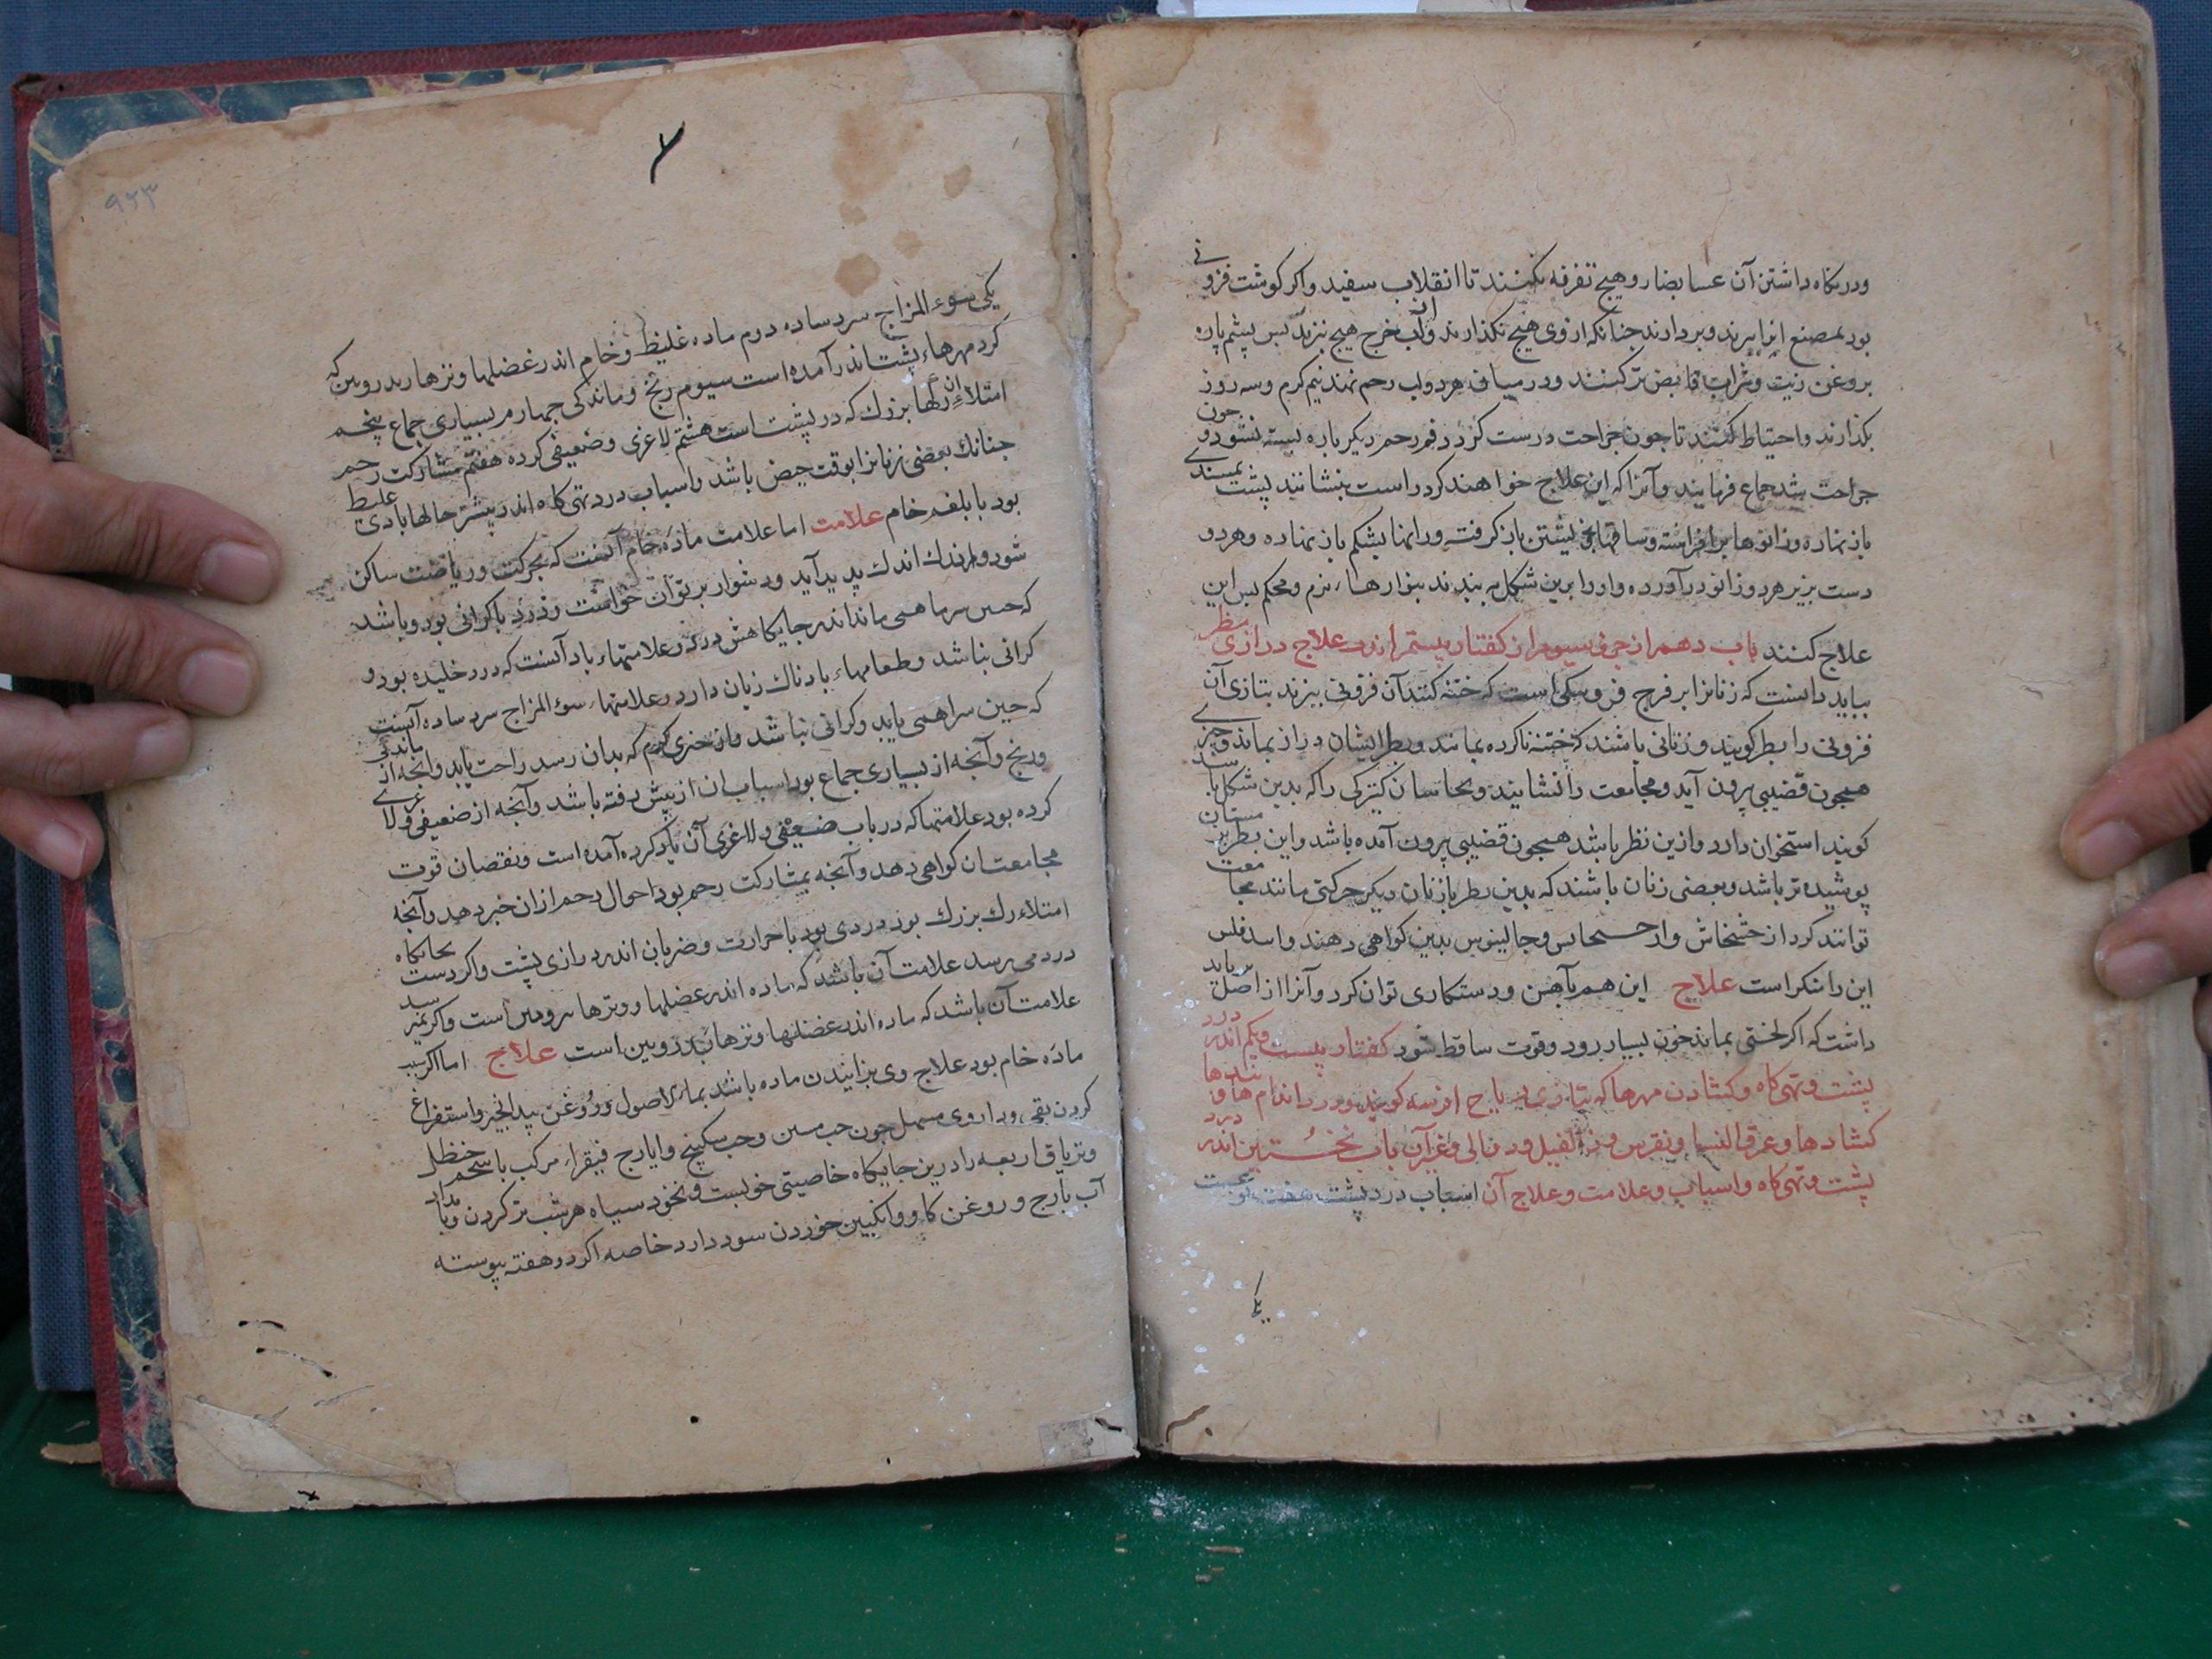 ودر نگاه داشتن آن عسا بضار و هیچ تفرقه نکنند تا انقلاب سفید واکر کوشت فزونی
بود بمصنع انرا برند و بردارند جنانکه از وی هیج نکذارند وآب خرج هیج نبزند بس پشم پاره
بروغن زیت و شراب قابض تر کنند و در میان هر دو لب رحم نهند نیم کرم وسه روز
بکذارند واحتیاط کنند تا جون جراحت درست کردد فم رحم دیکر باره بسته نشود و جون
جراحت شد جماع فرمایند وآنرا که این علاج خواهند کرد راست بنشانند پشت
باز نهاده وزانوها برافراشته وساقها بخویشتن باز کرفته ورانها بشکم باز نهاده وهر دو
دست بزیر هر دو زانو در آورده واورا برین شکل به بندند بنوارهاء نرم ومحکم بس این
علاج کنند باب دهم از جزو سیوم از کفتار بیستم اندر علاج درازی بظر
بباید دانست که زنانرا بر فرج فزونیکی است که ختنه کنند آن فزونی ببزند بتازی آن
فزونی را بظر کویند و زنانی باشند که ختنه ناکرده بمانند وبظر ایشان دراز بماند وجیزی
همجون قضیبی برون آید ومجامعت را نشایند وبخاسان کنیزکی را که بدین شکل یا
کویند استخوان دارد وازین نظر باشد همجون قضیبی برون آمده باشد واین بظر
پوشیده تر باشد وبعضی زنان باشند که بدین بظر بازنان دیکر حرکتی مانند مجامعت
توانند کرد از خشخاش وار وجالینوس بدین کواهی دهند واسدفلس
این را منکر است علاج این هم بآهن ودستکاری توان کرد وآنرا از اصل
داشت که اکر لختی بماند خون بسیار رود وقوت ساقط شود کفتار بیست ویکم اندر درد
پشت وتهی کاه وکشادن مهرها که بتازی ریاح افرسه کویند ودرد اندام ها و بندها
کشادها وعرق النسا ونقرس وداء الفیل ودوالی وغیر آن باب نخستین اندر درد
پشت وتهی کاه واسباب وعلامت وعلاج آن اسباب درد پشت هفت
یکی
٩٢٣
یکی سوء المزاج سرد ساده دوم ماده غلیظ وخام اندر عضلها وترها
کرد مهرهاء پشت اندر آمده است سیوم رنج وماندکی جهارم بسیاری جماع پنجم
امتلاء آن رکهاء بزرک که در پشت است هشتم لاغری وضعیفی کرده هفتم مشارکت رحم
جنانک بعضی زنانرا بوقت حیض باشد واسباب درد تهی کاه اندر بیشتر حالها بادی غلیظ
بود یا بلغم خام علامت اما علامت ماده خام آنست که بحرکت وریاضت ساکن
شود واندک اندک پدید آید ودشوار بر توان خواست ودرد با کرانی بود وباشد
که حس سرما همی یابد اندر جایکاهش درد وعلامتهاء باد آنست که درد خلیده بود و
کرانی نباشد وطعامهاء بادناک زیان دارد وعلامتهاء سوء المزاج سرد ساده آنست
که حین سرا همی یابد وکرانی نباشد واز جیزی کرم که بدان رسد راحت یابد وآنجه از ماندکی
ورنج وآنجه از بسیاری جماع بود اسباب آن از پیش رفته باشد وآنجه از ضعیفی ولاغری
کرده بود علامتها که در باب ضعیفی ولاغری آن یاد کرده آمده است ونقصان قوت
مجامعت آن کواهی دهد وآنجه بمشارکت رحم بود احوال رحم از آن خبر دهد وآنجه
امتلاء رک بزرک بود دردی بود با حرارت وضربان اندر درازی پشت واکر دست بجایکاه
درد می رسد علامت آن باشد که ماده اندر عضلها ووترها برونین است واکر نمی رسد
علامت آن باشد که ماده اندر عضلها ووترهاء اندرونین است علاج اما اکر سبب
ماده خام بود علاج وی بزانیدن ماده باشد بماء الاصول وروغن بیدانجیر واستفراغ
کردن بقی وداروی مسهل جون حب منتن وحب سکبینج وایارج فیقراء مرکب با شحم حنظل
وتریاق اربعه را درین جایکاه خاصیتی خوبست ونخود سیاه هر شب تر کردن وبامداد
آب بارج وروغن کاو وانکبین خوردن سود دارد خاصه اکر دو هفته پیوسته